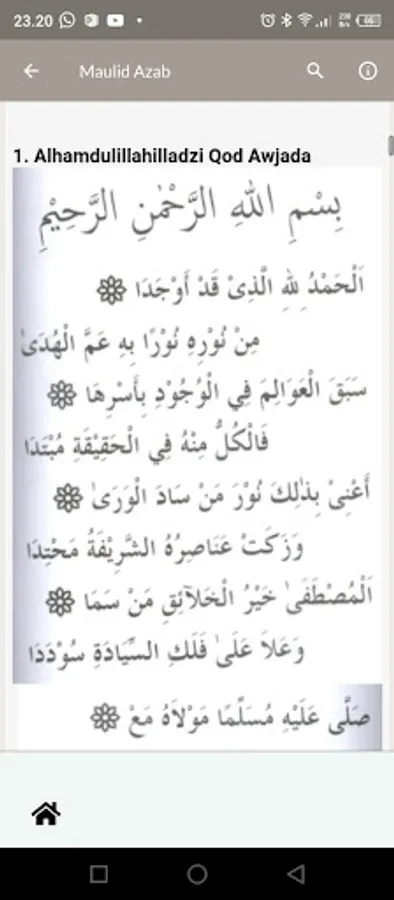 23.20
Maulid Azab
1. Alhamdulillahilladzi Qod Awjada
بِسْمِ اللهِ الرَّحْمٰنِ الرَّحِيْمِ
اَلْحَمْدُ لِلهِ الَّذِىْ قَدْ أَوْجَدَا
مِنْ نُوْرِهِ نُوْرًا بِهِ عَمَّ الْهُدَىٰ
سَبَقَ الْعَوَالِمَ فِي الْوُجُوْدِ بِأَسْرِهَا
فَالْكُلُّ مِنْهُ فِي الْحَقِيْقَةِ مُبْتَدَا
أَعْنِىْ بِذٰلِكَ نُوْرَ مَنْ سَادَ الْوَرَىٰ
وَزَكَتْ عَنَاصِرُهُ الشَّرِيْفَةُ مَحْتِدَا
اَلْمُصْطَفَىٰ خَيْرُ الْخَلَآئِقِ مَنْ سَمَا
وَعَلَا عَلَىٰ فَلَكِ السِّيَادَةِ سُوْدَدَا
صَلَّى عَلَيْهِ مُسَلِّمًا مَوْلَاهُ مَعْ